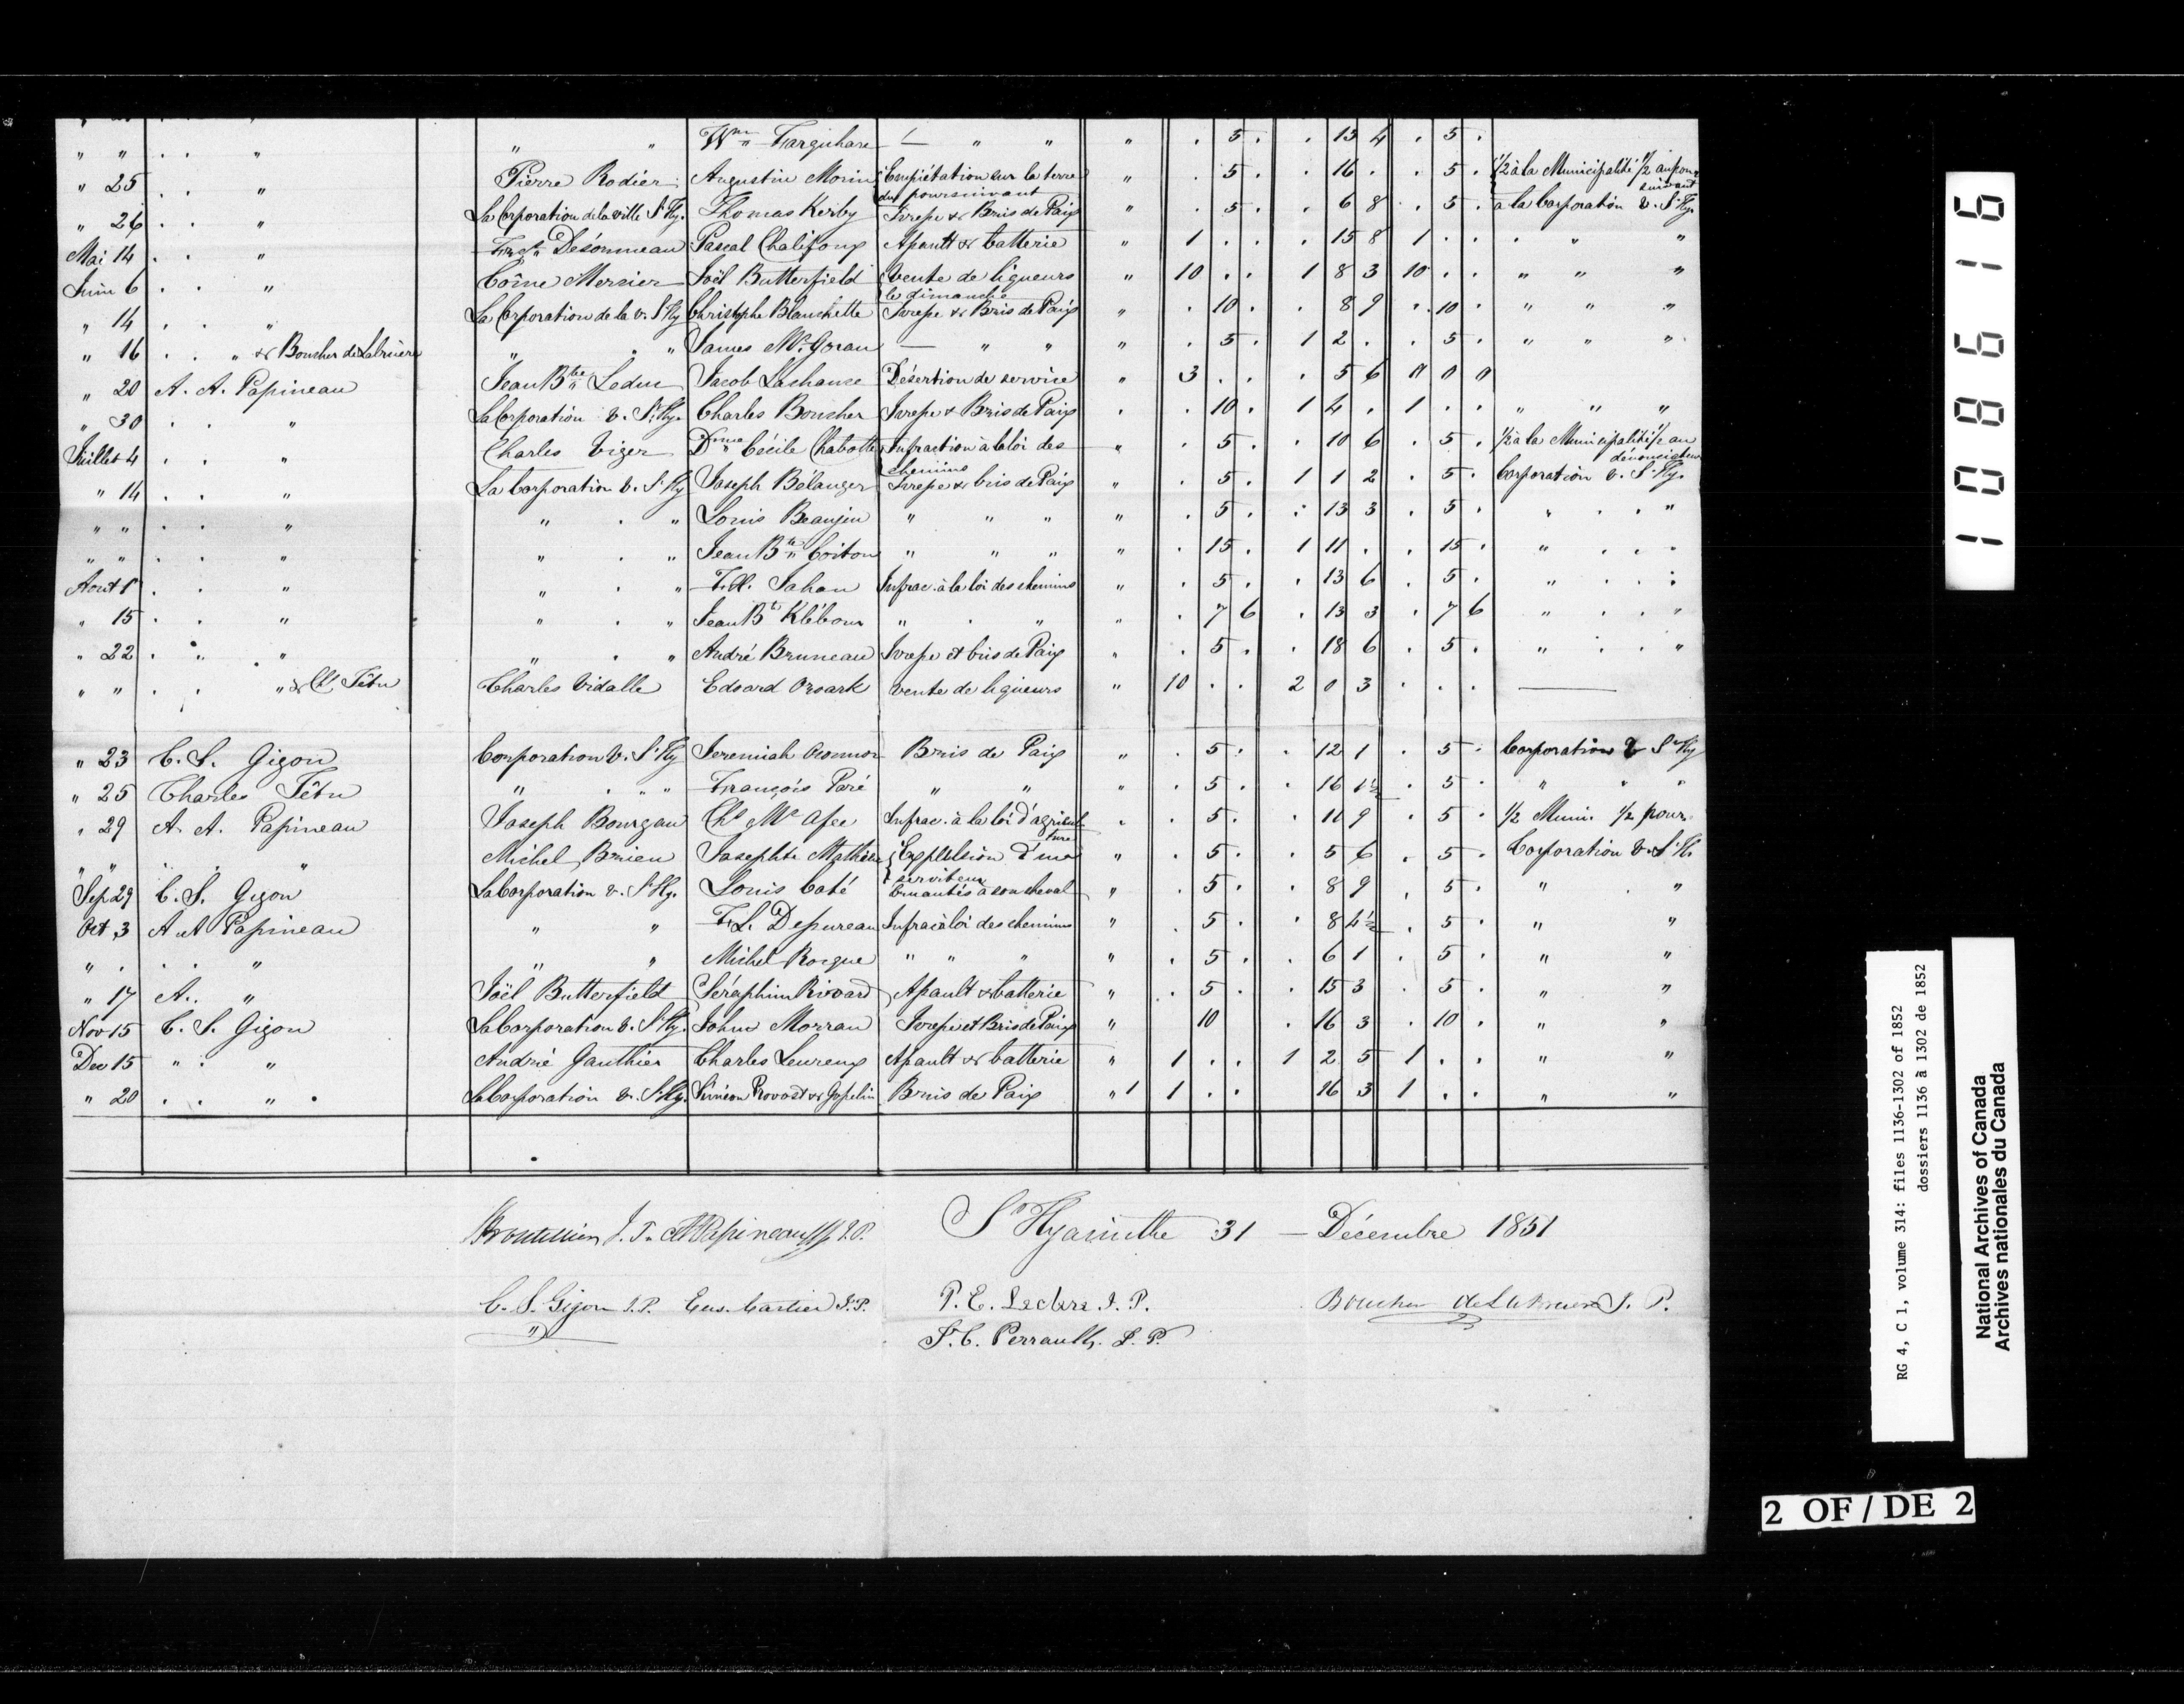 " " . . " " " Wm Farquhare — " " " . 5 . . 13 4 . 5 .
" 25 . . " Pierre Rodier Augustin Morin Empiétation sur la terre du poursuivant " . 5 . . 16 . . 5 . 1/2 à la Municipalité 1/2 au poursuivant
" 26 . . " La Corporation de la ville St Hy. Thomas Kerby Ivresse & Bris de Paix " . 5 . . 6 8 . 5 . à la Corporation v. St Hy.
Mai 14 . . " Désonneau Pascal Chalifoux Assault & batterie " 1 . . . 15 8 1 . . . " "
Juin 6 . . " Côme Mercier Joël Butterfield Vente de liqueurs le dimanche " 10 . . 1 8 3 10 . . " " "
" 14 . . " La Corporation de la v. St Hy Christophe Blanchette Ivresse & Bris de Paix " . 10 . . 8 9 . 10 . " " "
" 16 . . " & Boucher de Labruère " . " James Mc Goran — " " " . 5 . 1 2 . . 5 . " " "
" 20 A. A. Papineau Jean Bte Leduc Jacob Lachance Désertion de service " 3 . . . 5 6 0 0 0
" 30 . . " La Corporation v. St Hy. Charles Boucher Ivresse & Bris de Paix . . 10 . 1 4 . 1 . . " " "
Juillet 4 . . " Charles Viger Dme Cécile Chabotte Infraction à la loi des chemins " . 5 . . 10 6 . 5 . 1/2 à la Municipalité 1/2 au dénonciateur
" 14 . . " La Corporation v. St Hy Joseph Bélanger Ivresse & bris de Paix " . 5 . 1 1 2 . 5 . Corporation v. St Hy.
" " . . " " . " Louis Beaujeu " " " " . 5 . . 13 3 . 5 . " . . "
" " . . " " . " Jean Bte Coiton " " " " . 15 . 1 11 . . 15 . " . . .
Aout 1r . . " " . " Jahan Infrac. à la loi des chemins " . 5 . . 13 6 . 5 . " . . .
" 15 . . " " . " Jean Bte Klébour " . " " . 7 6 . 13 3 . 7 6 " . . "
" 22 . . " " . " André Bruneau Ivresse et bris de Paix " . 5 . . 18 6 . 5 . " . . "
" " . . " & Ch. Têtu Charles Vidalle Edouard Ozoark vente de liqueurs " 10 . . 2 0 3 . . . —
" 23 C. S. Gigon Corporation v. St Hy Jeremiah Oconnor Bris de Paix " . 5 . . 12 1 . 5 . Corporation v St Hy
" 25 Charles Têtu " . " " François Paré " " " . 5 . . 16 1½ . 5 . " " "
" 29 A. A. Papineau Joseph Bourgau Chs Mc Afee Infrac. à la loi d'agriculture " . 5 . . 11 9 . 5 . 1/2 Muni. 1/2 pour.
" " . . " Michel Brien Josephte Mathieu Explulsion d'un serviteur " . 5 . . 5 6 . 5 . Corporation v. St H
Sep 29 C. S. Gigon La Corporation v. St Hy. Louis Caté Cruautés à son cheval " . 5 . . 8 9 . 5 . " . "
Oct 3 A A Papineau " " F. L. Depureau Infrac à loi des chemins " . 5 . 8 4½ . 5 . " "
" . . . " " " Michel Rocque " " " " . 5 . . 6 1 . 5 . " "
" 17 A. . " Joël Butterfield Séraphin Rivard Assault & batterie " . 5 . . 15 3 . 5 . " "
Nov 15 C. S. Gigon La Corporation v. St Hy. John Morran Ivresse et Bris de Paix " 10 . 16 3 . 10 . " "
Dec 15 " . " André Gauthier Charles Leureux Assault & batterie " 1 . . 1 2 5 1 . . " "
" 20 . . " . La Corporation v. St Hy. Siméon Provost & Gosselin Bris de Paix " 1 1 . . 16 3 1 . . " "
J. P. AA Papineau J.P. St Hyacinthe 31 — Décembre 1851
C. S. Gigon J.P. Eus. Cartier J.P. P. E. Leclere J. P. Boucher de Labruere J. P.
S. C. Perrault. J. P.
108616
RG 4, C 1, volume 314: files 1136-1302 of 1852
dossiers 1136 à 1302 de 1852
National Archives of Canada
Archives nationales du Canada
2 OF / DE 2